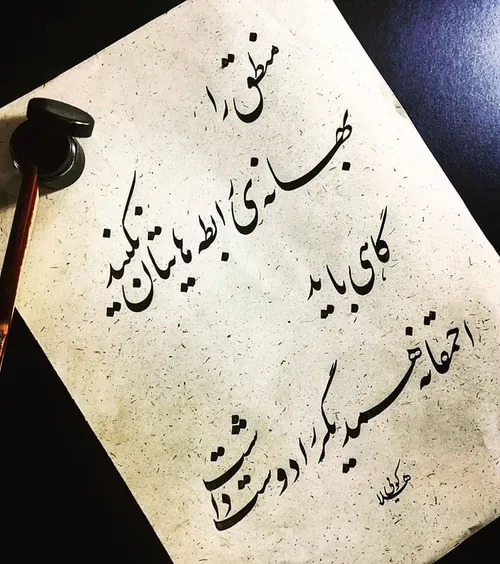 منطق را
بهانه‌ی رابطه هایتان نکنید
گاهی باید
احمقانه همدیگر را دوست داشت